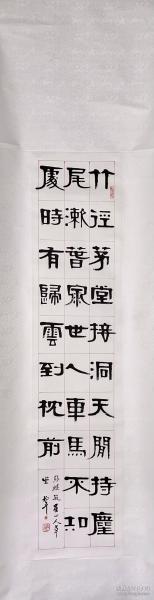 竹徑茅堂接洞天閒持麈
尾漱萅泉世人車馬不知
處時有歸雲到枕前
山人草
堂